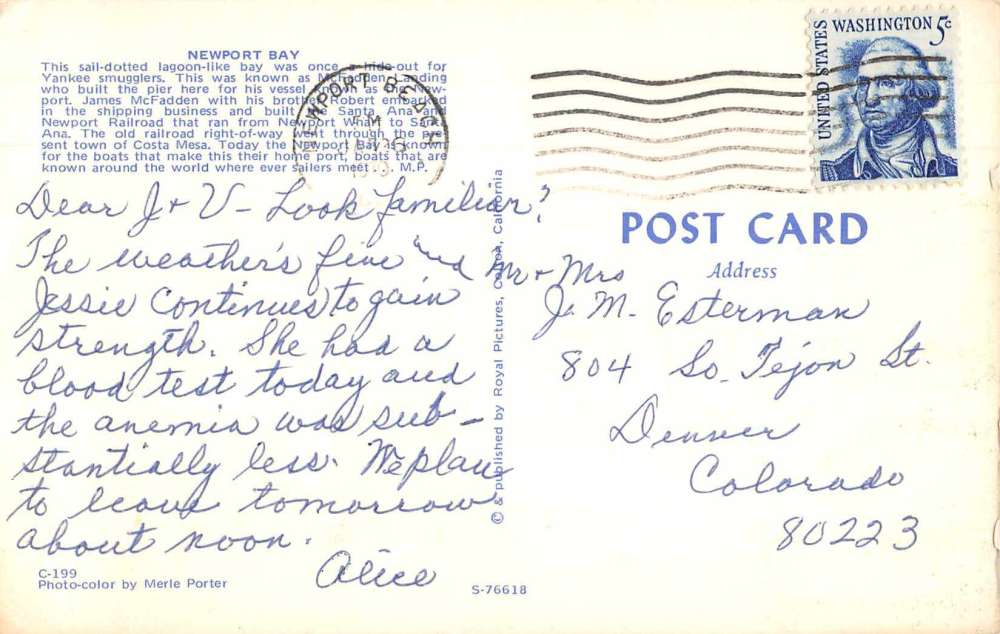 NEWPORT BAY
This sail-dotted lagoon-like bay was once a hide-out for
Yankee smugglers. This was known as McFadden Landing
who built the pier here for his vessel known as the New-
port. James McFadden with his brother Robert embarked
in the shipping business and built the Santa Ana and
Newport Railroad that ran from Newport Wharf to Santa
Ana. The old railroad right-of-way went through the pre-
sent town of Costa Mesa. Today the Newport Bay is known
for the boats that make this their home port, boats that are
known around the world where ever sailers meet . . . M.P.
NEWPORT BEACH
UNITED STATES
WASHINGTON 5c
Dear J + V - Look familiar?
The weather's fine and
Jessie continues to gain
strength. She had a
blood test today and
the anemia was sub-
stantially less. We plan
to leave tomorrow
about noon.
Alice
C-199
Photo-color by Merle Porter
© & published by Royal Pictures, Colton, California
S-76618
POST CARD
Address
Mr + Mrs
J. M. Esterman
804 So. Tejon St.
Denver
Colorado
80223